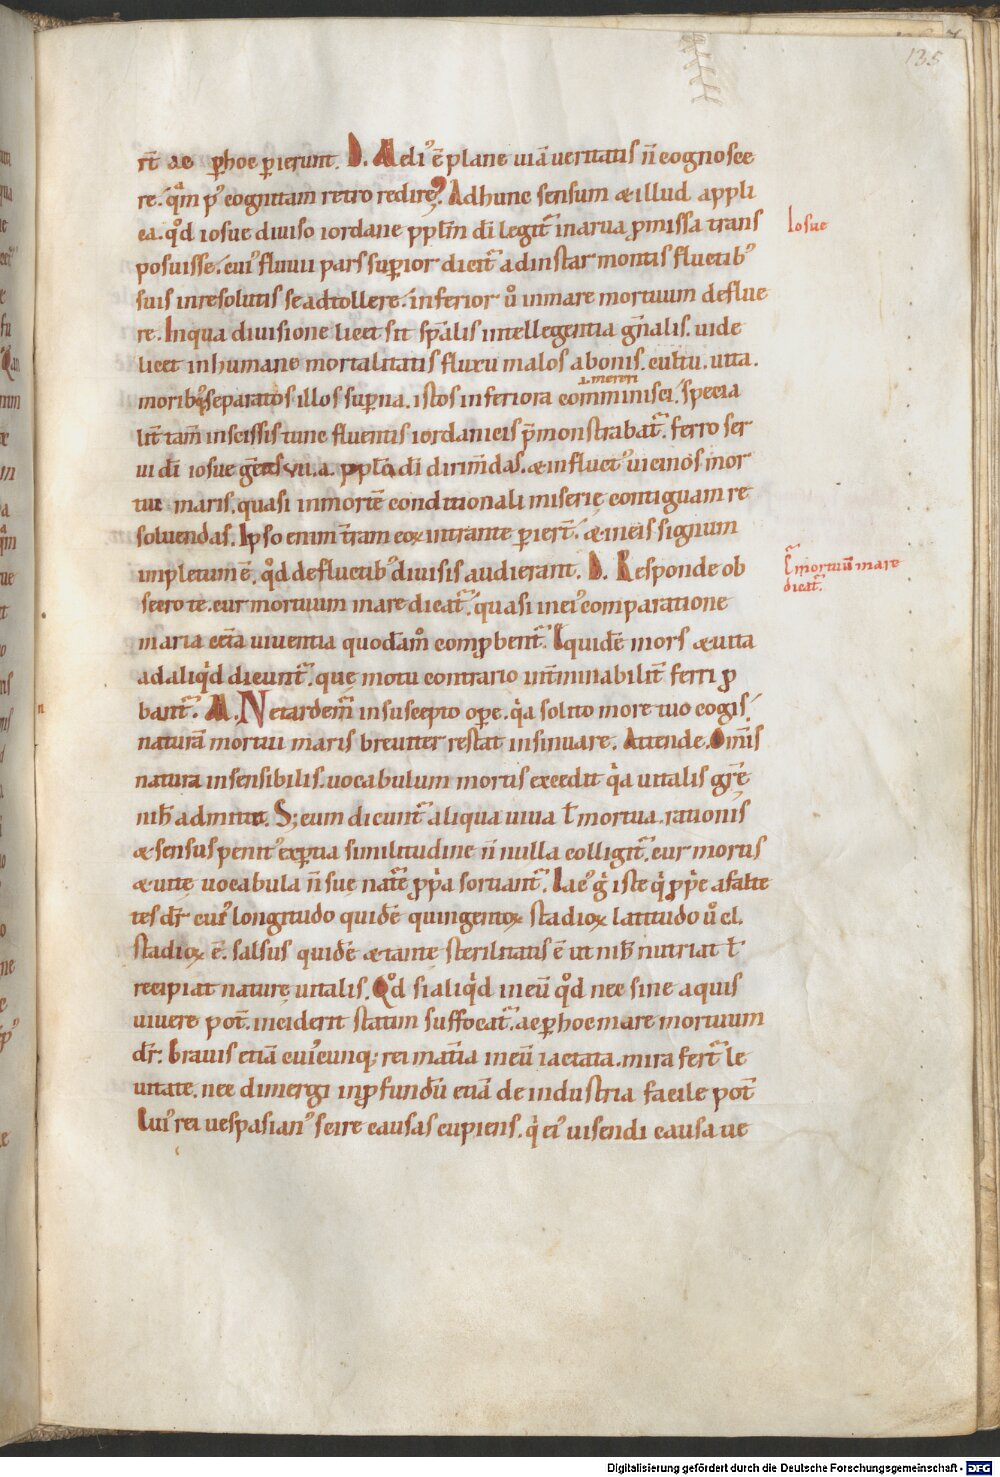 135
rt̄ ac ꝑhoc ꝑierunt. D. Meli᾽ ē plane uiā ueritatis n̄ cognosce
re. quā p᾽ cognitam retro redire? Adhunc sensum & illud appli
ca. qd̄ iosue diuiso iordane pplm̄ dī legit᾽ inarua ꝓmissa trans
Iosue
posuisse. cui᾽ fluuii pars suꝑior dicit᾽ adinstar montis fluctib᾽
suis inresolutis se adtollere. inferior u᾽o inmare mortuum deflue
re. Inqua diuisione licet sit sp̄alis intellegentia gn̄alis. uide
licet inhumane mortalitatis fluxu malos abonis. cultu. uita.
moribꝰ separatos. illos suꝑna. istos inferiora comminisci. specia
.i. meteri
lit᾽ tam̄ inscissis tunc fluentis iordanicis p̄monstrabat᾽. ferro ser
ui dī iosue gentes .vii. a. pplo dī dirim̄das. & influct᾽ uicinos mor
tui maris. quasi inmortē conditionali miserię contiguam re
soluendas. Ipso enim tr̄am eoꝝ intrante ꝑiert̄. & ineis signum
impletum ē. qd̄ defluctib᾽ diuisis audierant. D. Responde ob
Cur mortuū mare
dicat᾽.
secro te. cur mortuum mare dicat᾽. quasi inei᾽ comparatione
maria cet̄a uiuentia quodam̄o comꝓbent᾽. Siquidē mors & uita
ad aliqd̄ dicunt᾽. quę motu contrario int̄minabilit᾽ ferri ꝓ
bant᾽. M. Netardem᾽ insuscepto oꝑe. qa solito more tuo cogis
naturā mortui maris breuiter restat insinuare. Attende. Omīs
natura insensibilis. uocabulum mortis excedit qa uitalis gr̄e
nihil admittit. S; cum dicunt᾽ aliqua uiua ł mortua. rationis
& sensus penit᾽ exꝑtia similitudine n̄ nulla colligit᾽. cur mortis
& uitę uocabula n̄ sue nat̄e ꝓp̄a soruant᾽. Lac᾽ g᾽ iste q̇ ꝓp̄e asfalte
tes dr̄ cui᾽ longitudo quidē quingentoꝝ stadioꝝ latitudo u᾽o cl.
stadioꝝ ē. salsus quidē & tante sterilitatis ē ut nihil nutriat ł
recipiat naturę uitalis. Qd̄ si aliqd̄ ineū qd̄ nec sine aquis
uiuere pot̄. inciderit statim suffocat᾽. ac ꝑhoc mare mortuum
dr̄. Grauis etiā cui᾽cunq; rei mat̄ia ineū iactata. mira fert᾽ le
uitate. nec dimergi inꝓfundū etiā de industria facile pot̄
Cui᾽ rei uespasian᾽ scire causas cupiens. q̇ ei᾽ uisendi causa ue
Digitalisierung gefördert durch die Deutsche Forschungsgemeinschaft - DFG